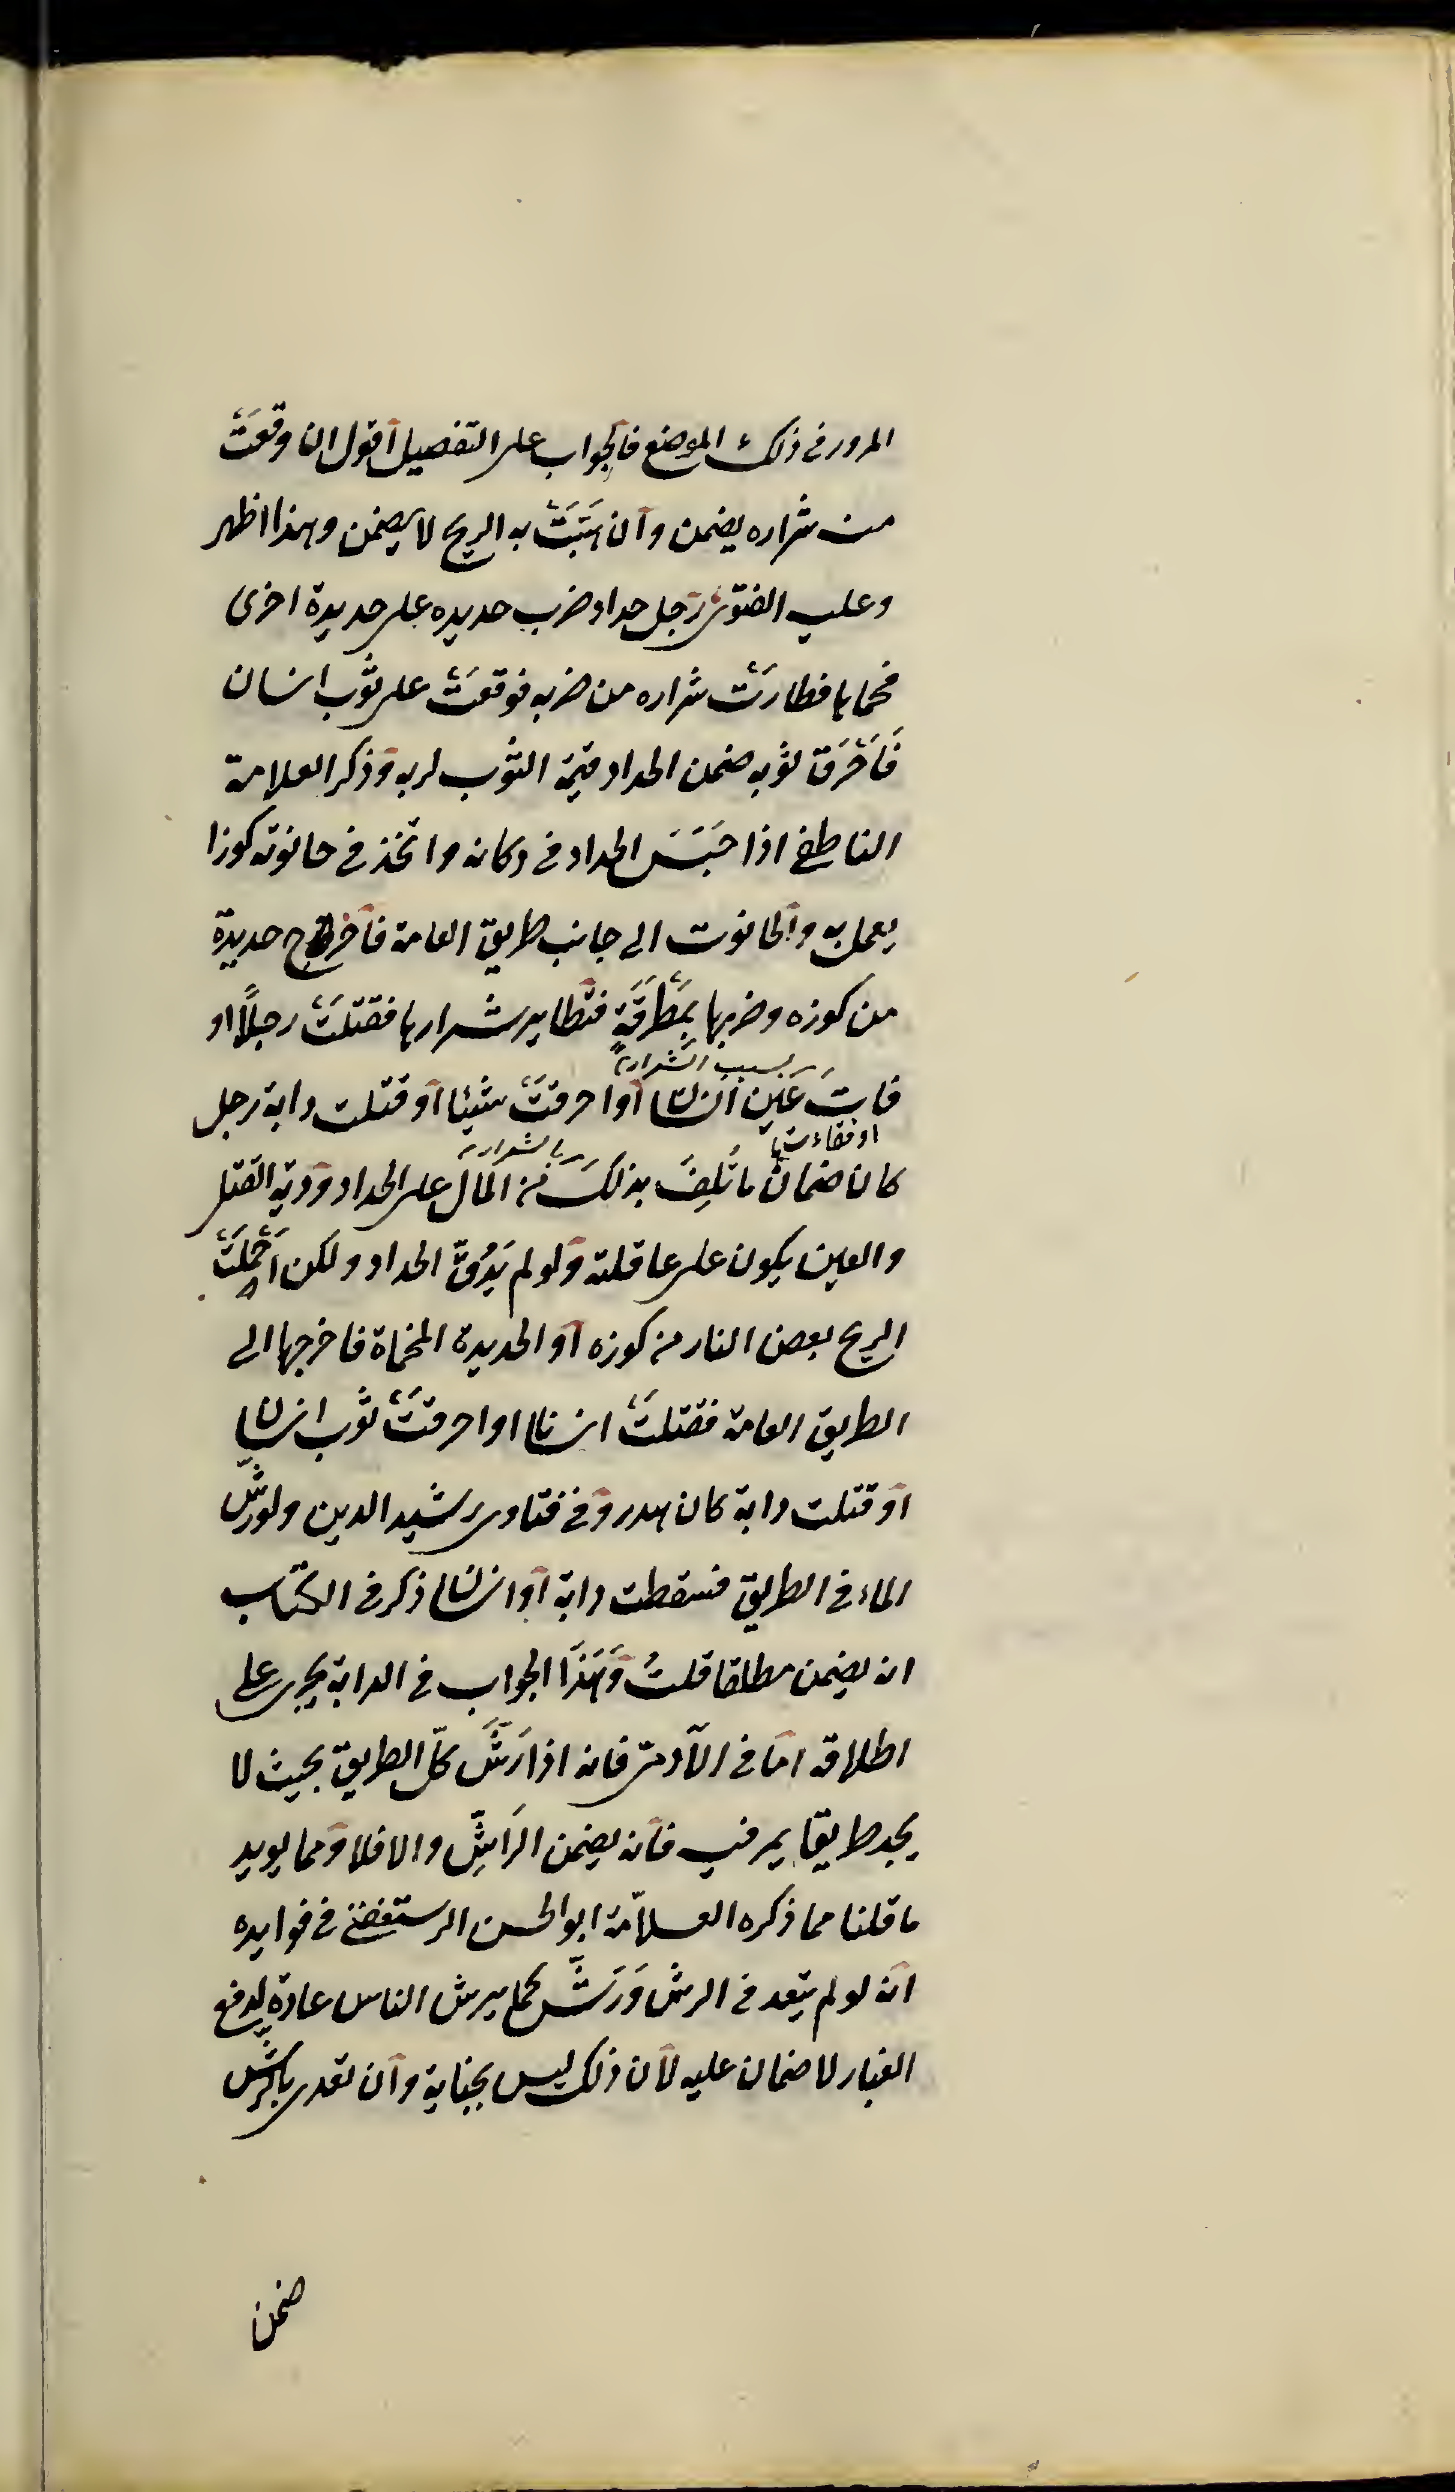 المرور في ذلك الموضع فالجواب على التفصيل اقول ان وقعَتْ
من شراره يضمن وان هبَّتَتْ به الريح لا يضمن وهذا اظهر
وعليه الفتوى رجل حداد ضرب حديده على حديدة اخرى
محماة فطارَتْ شراره من ضربه فوقعَتْ على ثوب انسان
فَاَحْرَقَ ثوبه ضمن الحداد قيمة الثوب لربه وذكر العلامة
الناطفي اذا جَلَسَ الحداد في دكانه واتخذ في حانوته كوزا
يعمل به والحانوت الى جانب طريق العامة فاخرج حديدة
من كوزه وضربها بِمَطْرَقَةٍ فتطاير شرارها فقتلَتْ رجلًا او
بسبب الشرارة
فات عَيْن انسانا او احرقَتْ شيئا او قتلت دابة رجل
او فقاءت
بالشرارة
كان ضمان ما تَلِفَ بذلكَ من المال على الحداد ودية القتل
والعين يكون على عاقلته ولو لم يَدُقّ الحداد ولكن احْمَلَتْ
الريح بعض النار من كوزه او الحديدة المحماة فاخرجها الى
الطريق العامة فقتلَتْ انسانا او احرقَتْ ثوب انسان
او قتلت دابة كان هدر وفي فتاوى رشيد الدين ولو رشّ
الماء في الطريق فسقطت دابة او انسانا ذكر في الكتاب
انه يضمن مطلقا قلتُ وَهَذَا الجواب في الدابة يجرى على
اطلاقه امّا في الآدمى فانه اذا رَشَّ كلّ الطريق بحيث لا
يجد طريقا يمر فيه فانه يضمن الرَاشِّ والا فلا ومما يويد
ما قلنا مما ذكره العلاّمة ابو الحسن الرستغفني في فوايده
انه لو لم يتعد في الرش وَرَشَّ كما يرش الناس عادة لدفع
الغبار لا ضمان عليه لان ذلك ليس بجناية وان تعدى بالرشّ
ضمن